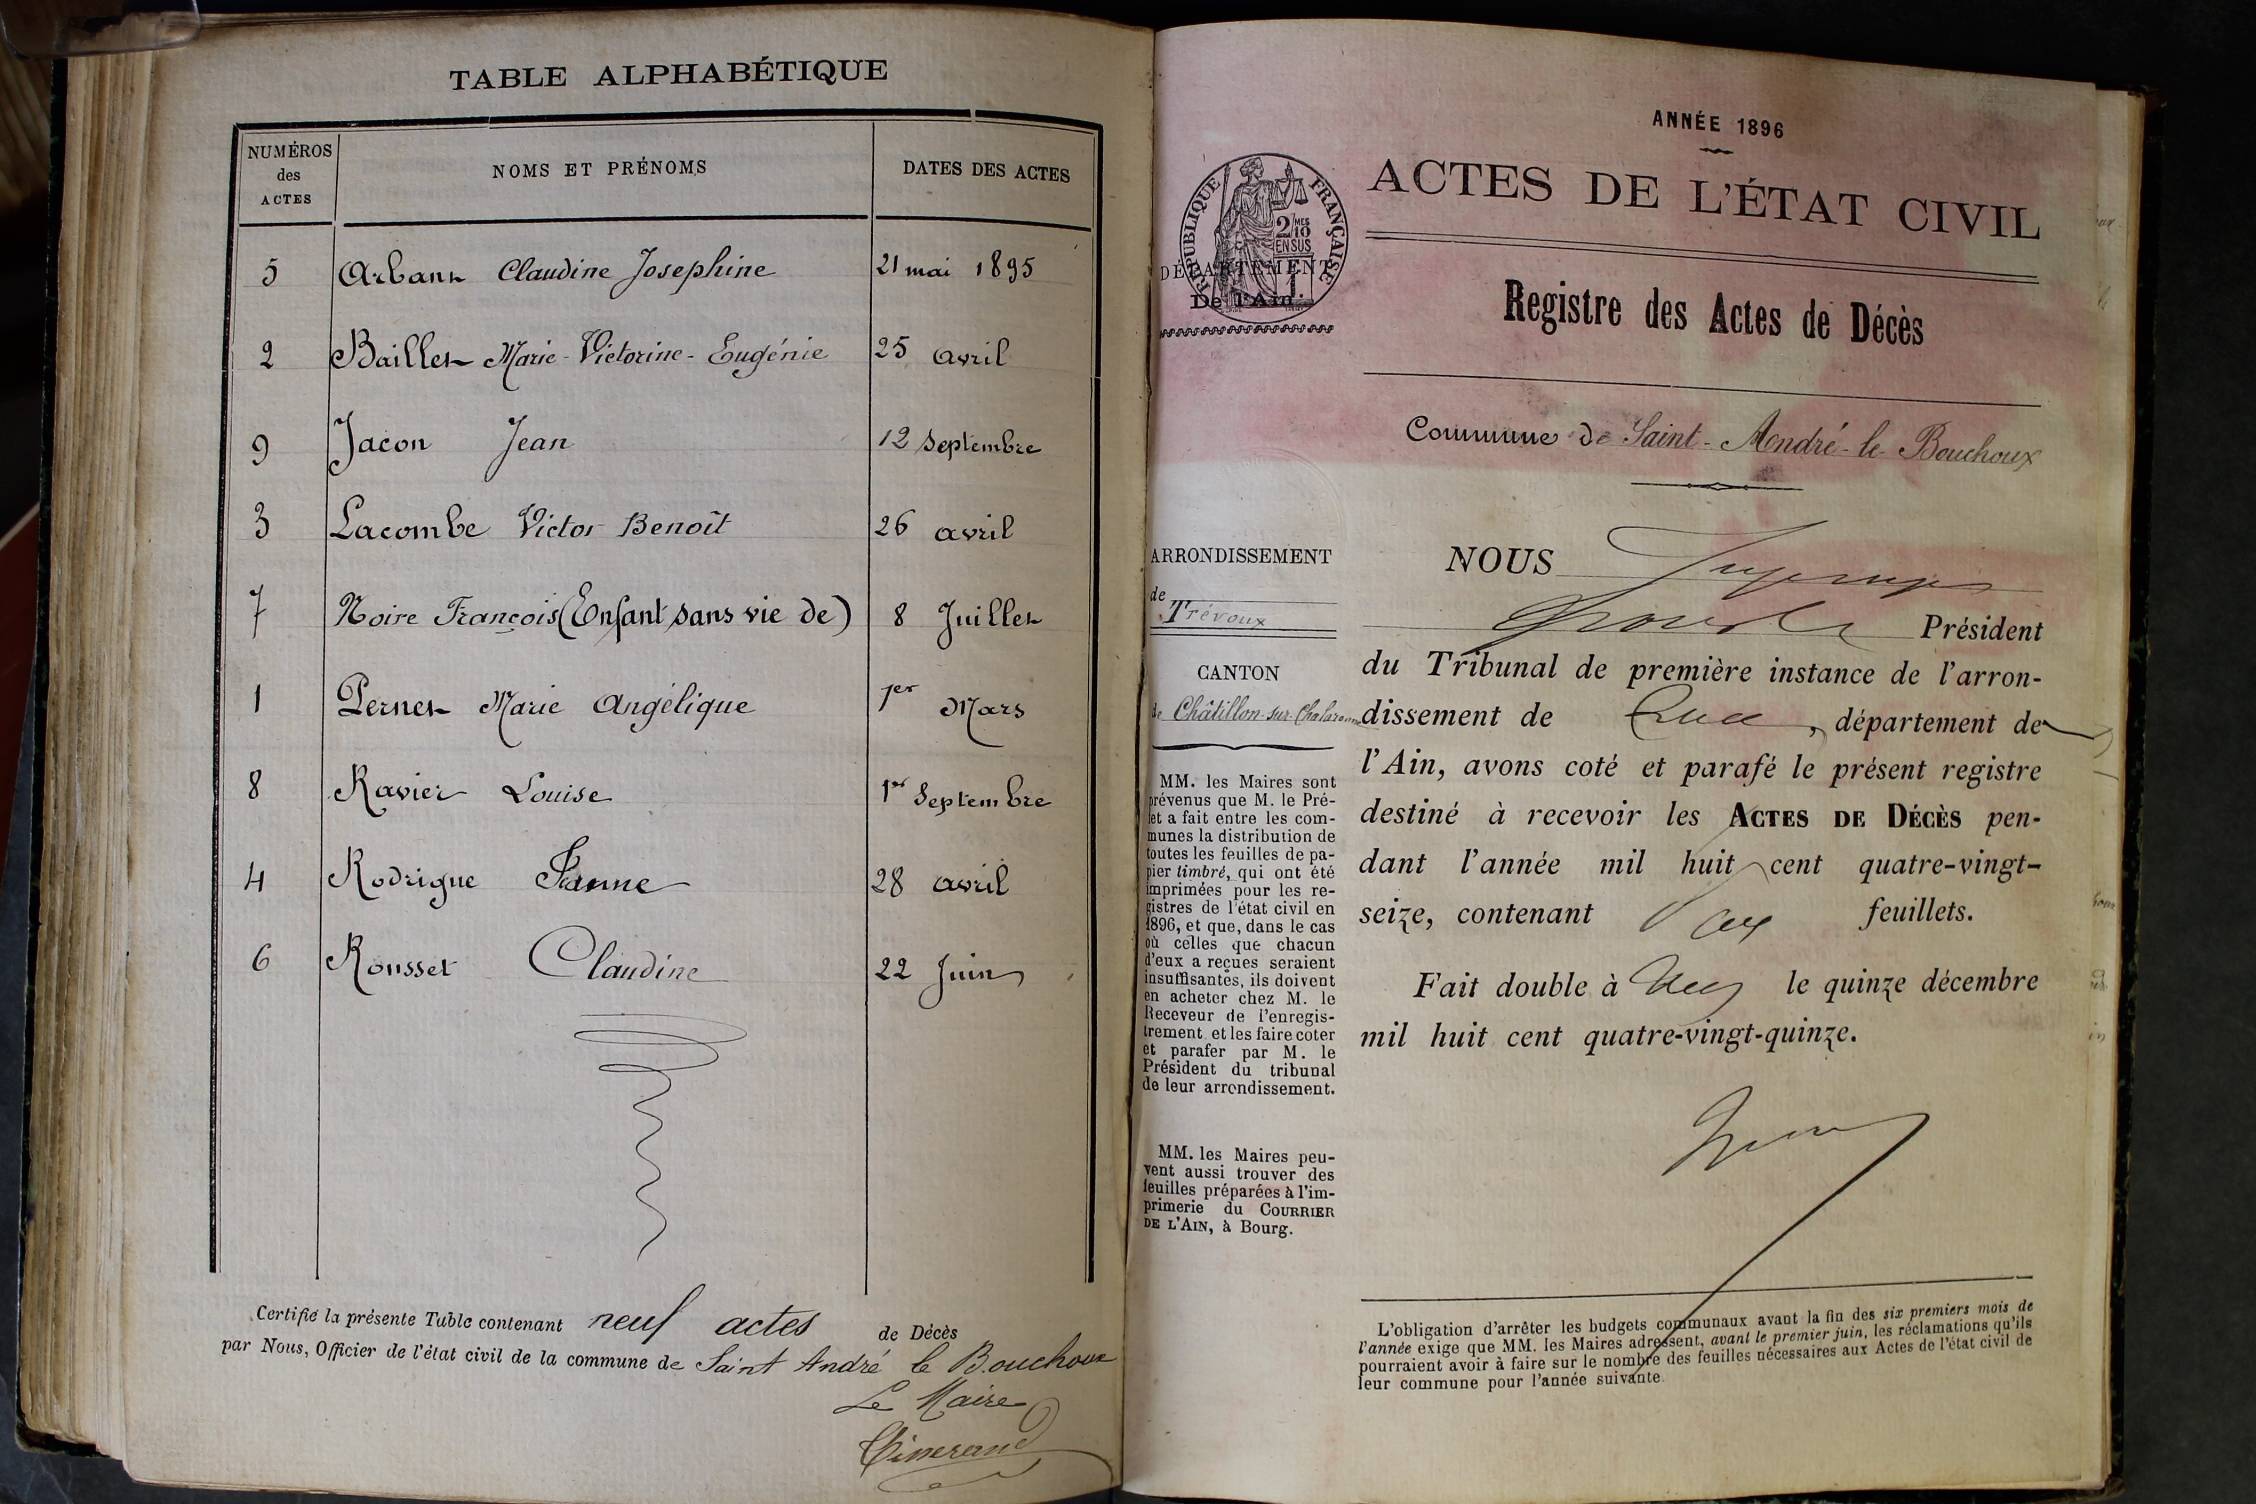 TABLE ALPHABÉTIQUE
NUMÉROS
des
ACTES
NOMS ET PRÉNOMS
DATES DES ACTES
5 Arbant Claudine Josephine 21 mai 1895
2 Baillet Marie-Victorine-Eugénie 25 avril
9 Jacon Jean 12 Septembre
3 Lacombe Victor Benoît 26 avril
7 Noire François (Enfant sans vie de) 8 Juillet
1 Pernet Marie Angélique 1er Mars
8 Ravier Louise 1er Septembre
4 Rodrigue Jeanne 28 avril
6 Rousset Claudine 22 Juin
Certifié la présente Table contenant neuf actes de Décès
par Nous, Officier de l'état civil de la commune de Saint André le Bouchoux
Le Maire
ANNÉE 1896
ACTES DE L'ÉTAT CIVIL
RÉPUBLIQUE FRANÇAISE
2/10 MES
EN SUS
DÉPARTEMENT
De l'Ain.
Registre des Actes de Décès
Commune de Saint-André-le-Bouchoux
ARRONDISSEMENT
de
Trévoux
CANTON
de Châtillon-sur-Chalaronne
MM. les Maires sont
prévenus que M. le Pré-
fet a fait entre les com-
munes la distribution de
toutes les feuilles de pa-
pier timbré, qui ont été
imprimées pour les re-
gistres de l'état civil en
1896, et que, dans le cas
où celles que chacun
d'eux a reçues seraient
insuffisantes, ils doivent
en acheter chez M. le
Receveur de l'enregis-
trement et les faire coter
et parafer par M. le
Président du tribunal
de leur arrondissement.
MM. les Maires peu-
vent aussi trouver des
feuilles préparées à l'im-
primerie du COURRIER
DE L'AIN, à Bourg.
NOUS
Président
du Tribunal de première instance de l'arron-
dissement de , département de
l'Ain, avons coté et parafé le présent registre
destiné à recevoir les ACTES DE DÉCÈS pen-
dant l'année mil huit cent quatre-vingt-
seize, contenant feuillets.
Fait double à le quinze décembre
mil huit cent quatre-vingt-quinze.
L'obligation d'arrêter les budgets communaux avant la fin des six premiers mois de
l'année exige que MM. les Maires adressent, avant le premier juin, les réclamations qu'ils
pourraient avoir à faire sur le nombre des feuilles nécessaires aux Actes de l'état civil de
leur commune pour l'année suivante.